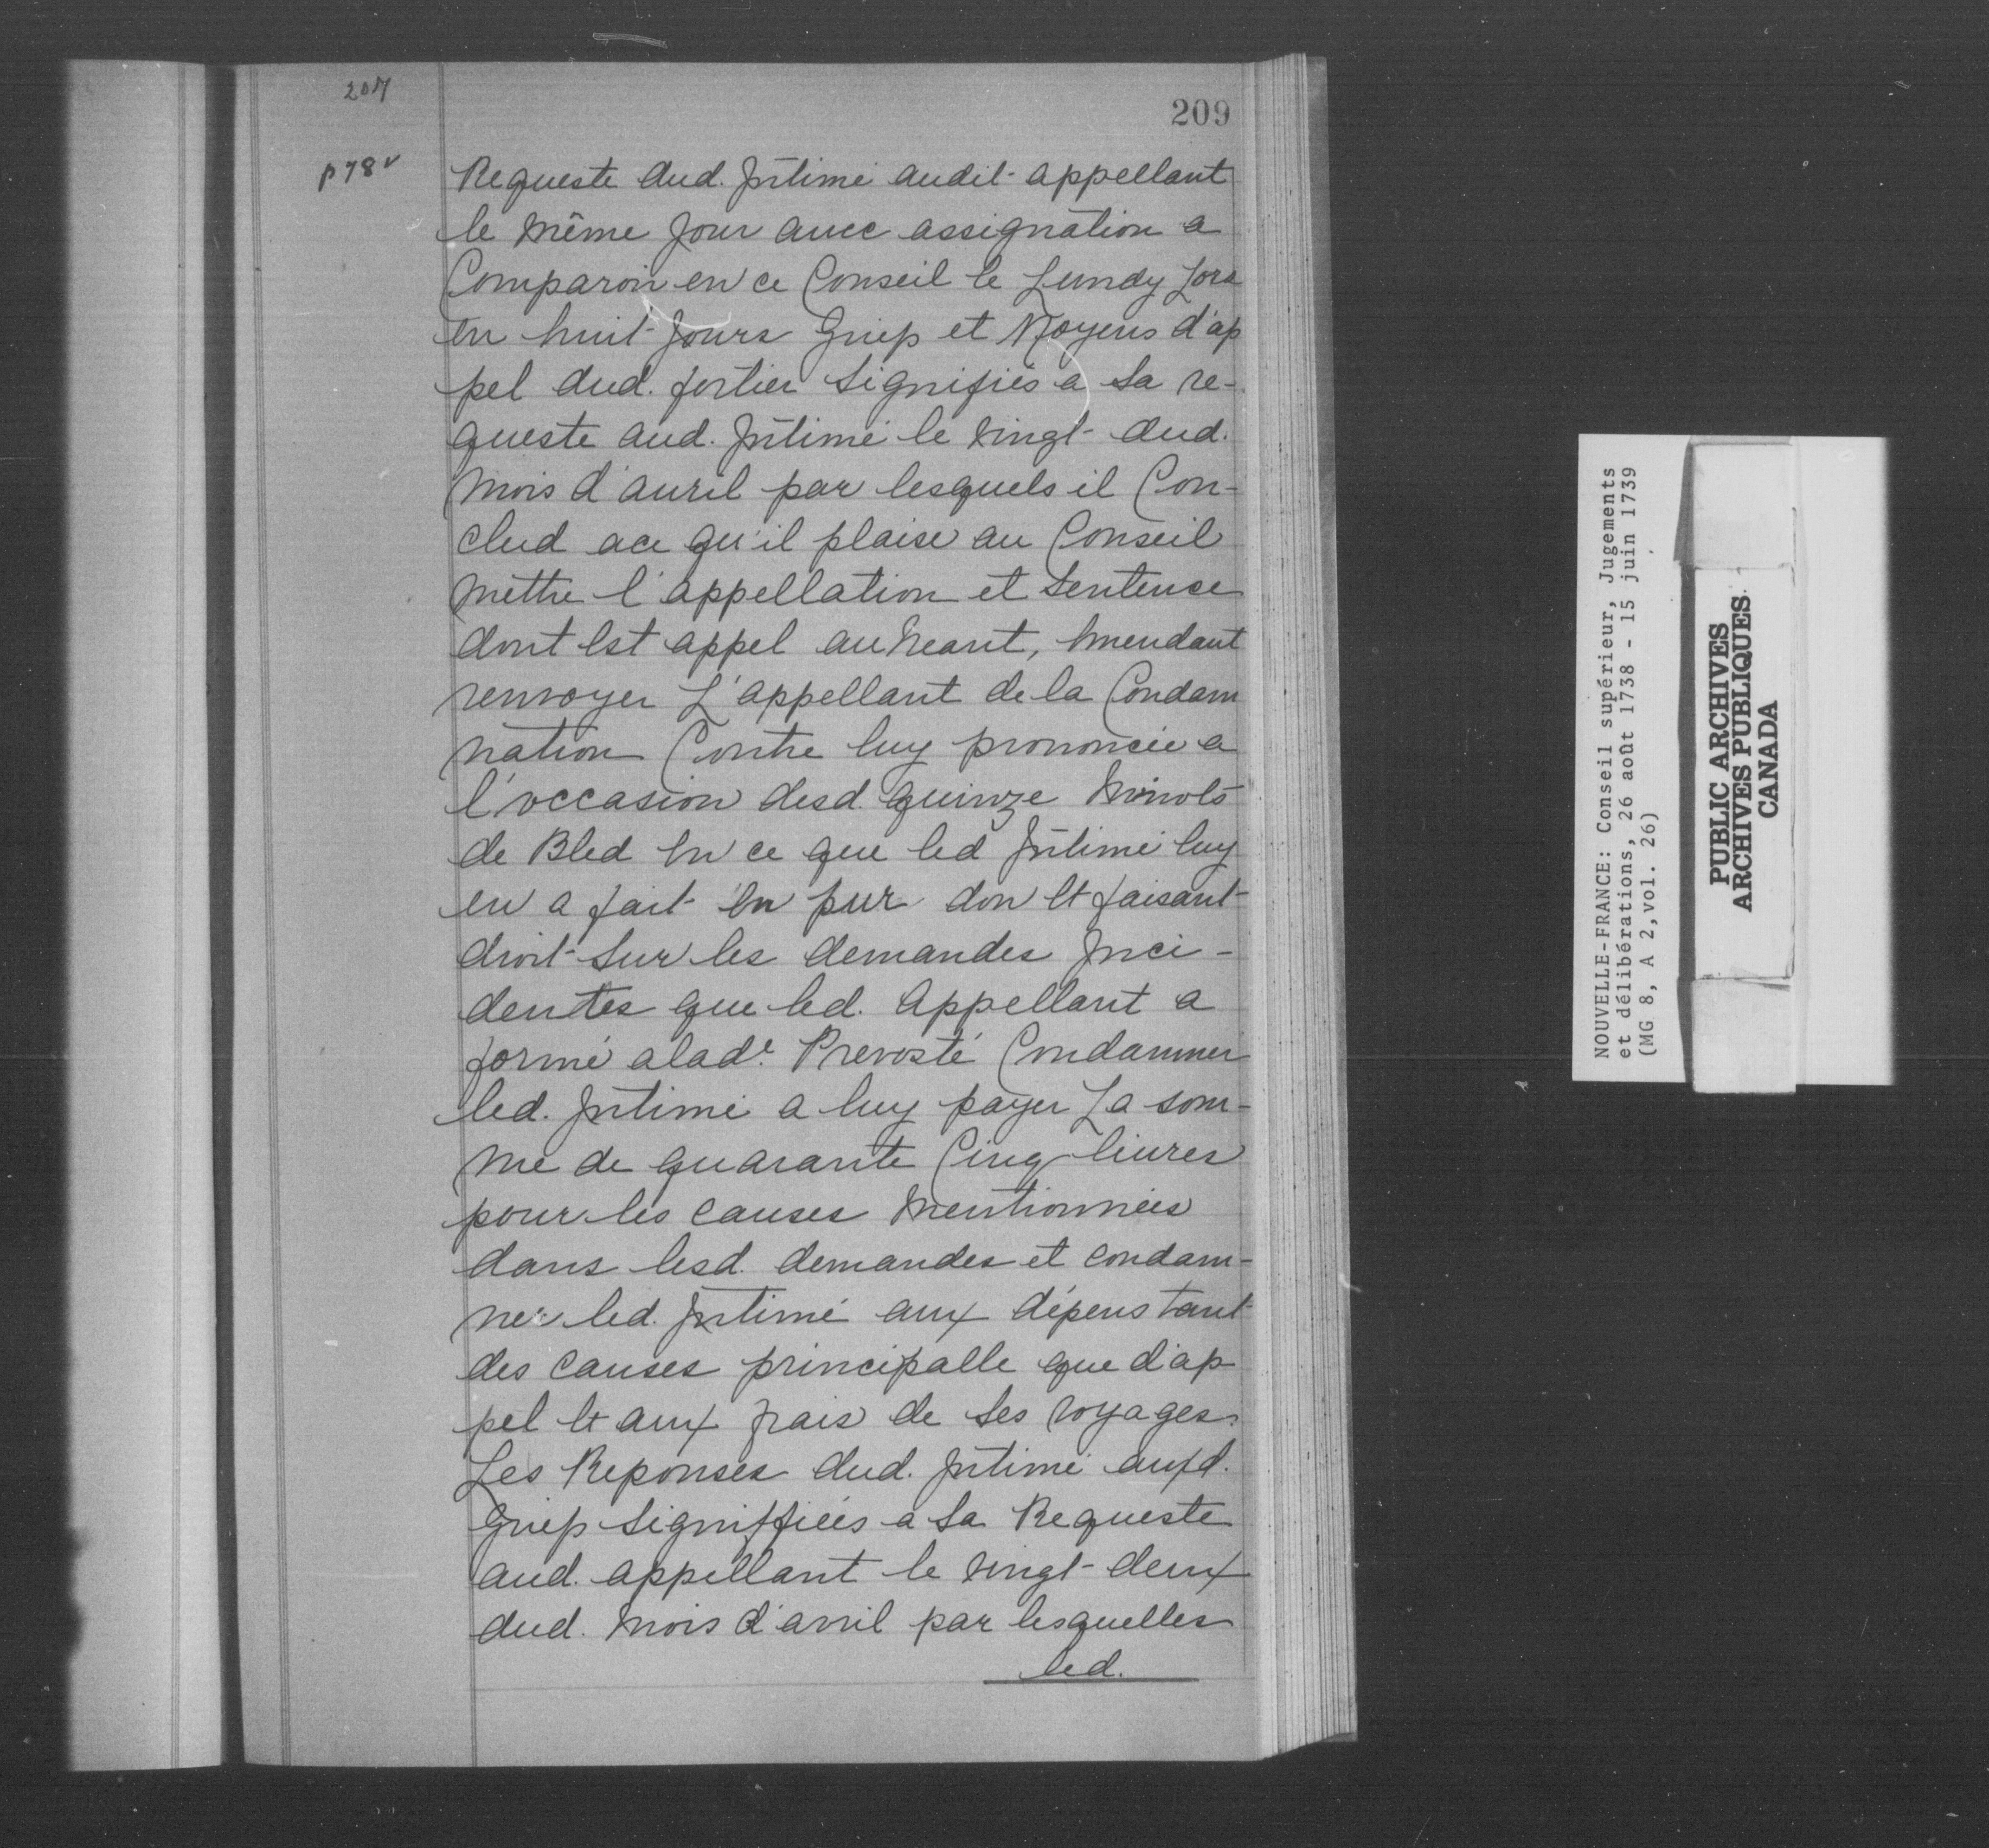 207
209
p 78 v
Requeste dud. Jntimé audit appellant
le même Jour auec assignation a
Comparoir en ce Conseil le Lundy Lors
en huit Jours Grief et Moyens d'ap
pel dud. fortier signifiés a sa re-
queste aud. Jntimé le vingt dud.
mois d'auril par lesquels il Con-
clud ace qu'il plaise au Conseil
mettre l'appellation et sentence
dont Est appel au neant, Emendant
renvoyer L'appellant de la Condam
nation Contre luy prononcée a
l'occasion desd. quinze minots
de Bled En ce que led Jntimé luy
en a fait En pur don Et faisant
droit sur les demandes Jnci-
dentes que led. appellant a
formé a lade. Prevosté Condamner
led. Jntimé a luy payer La som-
me de quarante Cinq liures
pour les causes mentionnées
dans lesd. demandes et condam-
ner led. Jntimé aux dépens tant
des causes principalle que d'ap
pel Et aux frais de ses voyages.
Les Reponses dud. Jntimé auxd.
Grief signiffiées a sa Requeste
aud. appellant le vingt-deux
dud. mois d'avril par lesquelles
led.
NOUVELLE-FRANCE: Conseil supérieur, Jugements
et délibérations, 26 août 1738 - 15 juin 1739
(MG 8, A 2, vol. 26)
PUBLIC ARCHIVES
ARCHIVES PUBLIQUES
CANADA